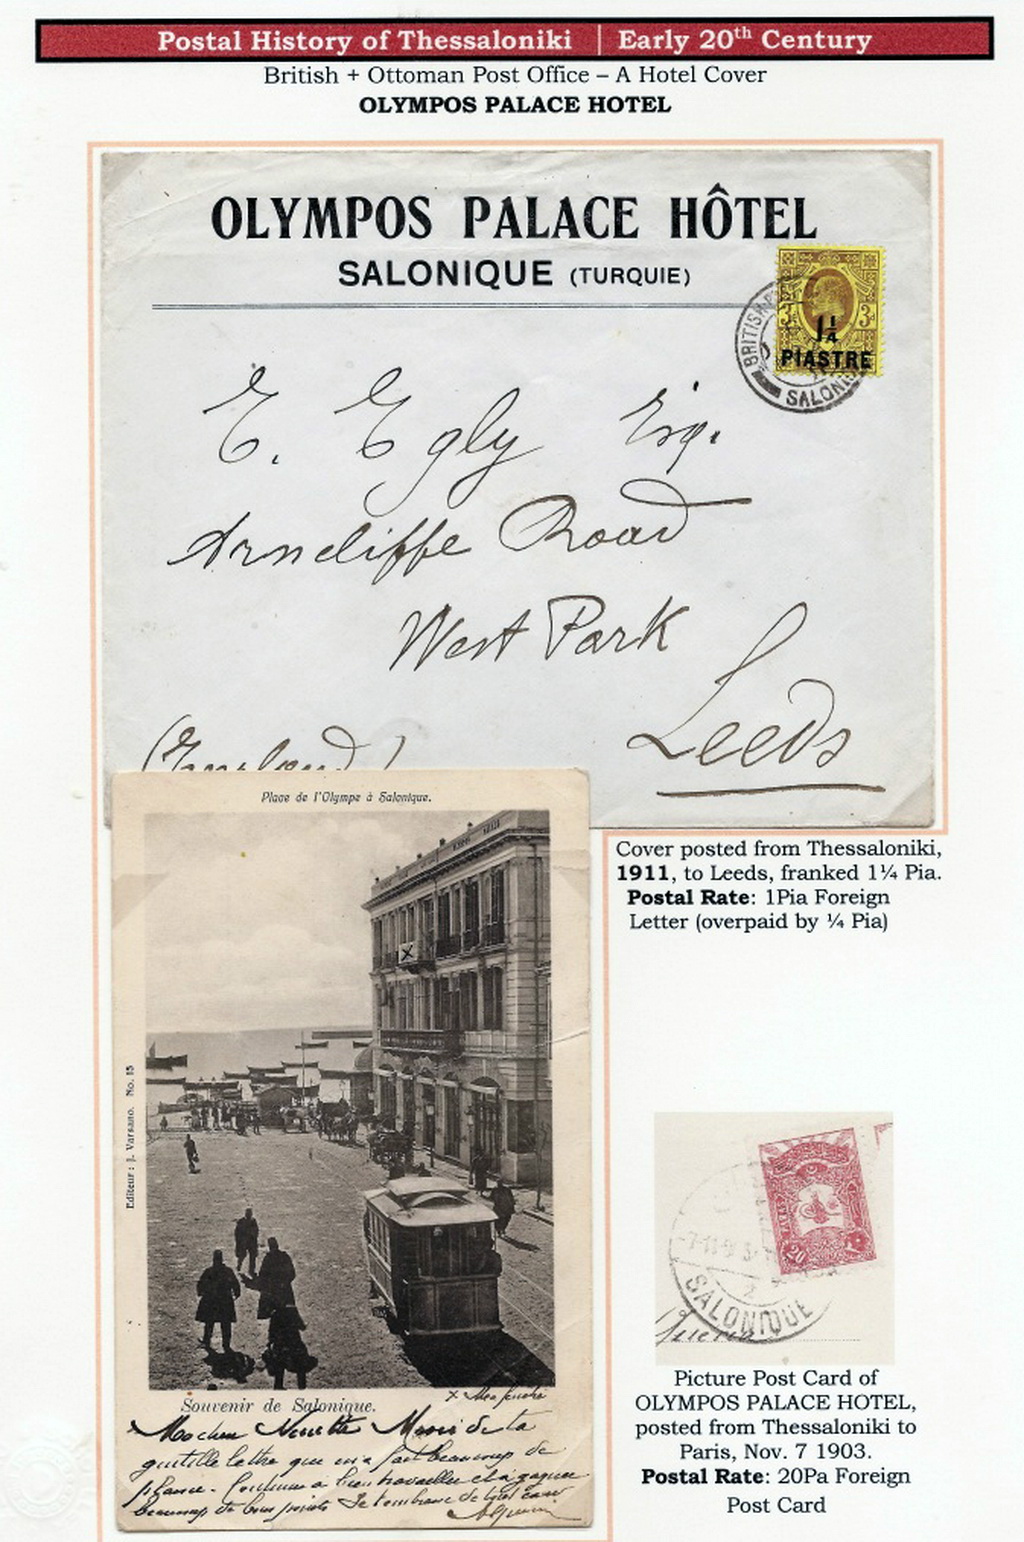 Postal History of Thessaloniki | Early 20th Century
British + Ottoman Post Office – A Hotel Cover
OLYMPOS PALACE HOTEL
OLYMPOS PALACE HÔTEL
SALONIQUE (TURQUIE)
3d 3d
1¼
PIASTRE
BRITISH
SALONI
E. Egly Esq.
Arncliffe Road
West Park
Leeds
(England)
Place de l'Olympe à Salonique.
Editeur: J. Varsano. No. 15
X
Souvenir de Salonique.
x Ma fenêtre
Mon cher Merci de ta
gentille lettre qui m'a fait beaucoup de
plaisir. Continue à bien travailler et à gagner
beaucoup de bons points Je t'embrasse de tout cœur
Cover posted from Thessaloniki,
1911, to Leeds, franked 1¼ Pia.
Postal Rate: 1Pia Foreign
Letter (overpaid by ¼ Pia)
20
SALONIQUE
2
Picture Post Card of
OLYMPOS PALACE HOTEL,
posted from Thessaloniki to
Paris, Nov. 7 1903.
Postal Rate: 20Pa Foreign
Post Card